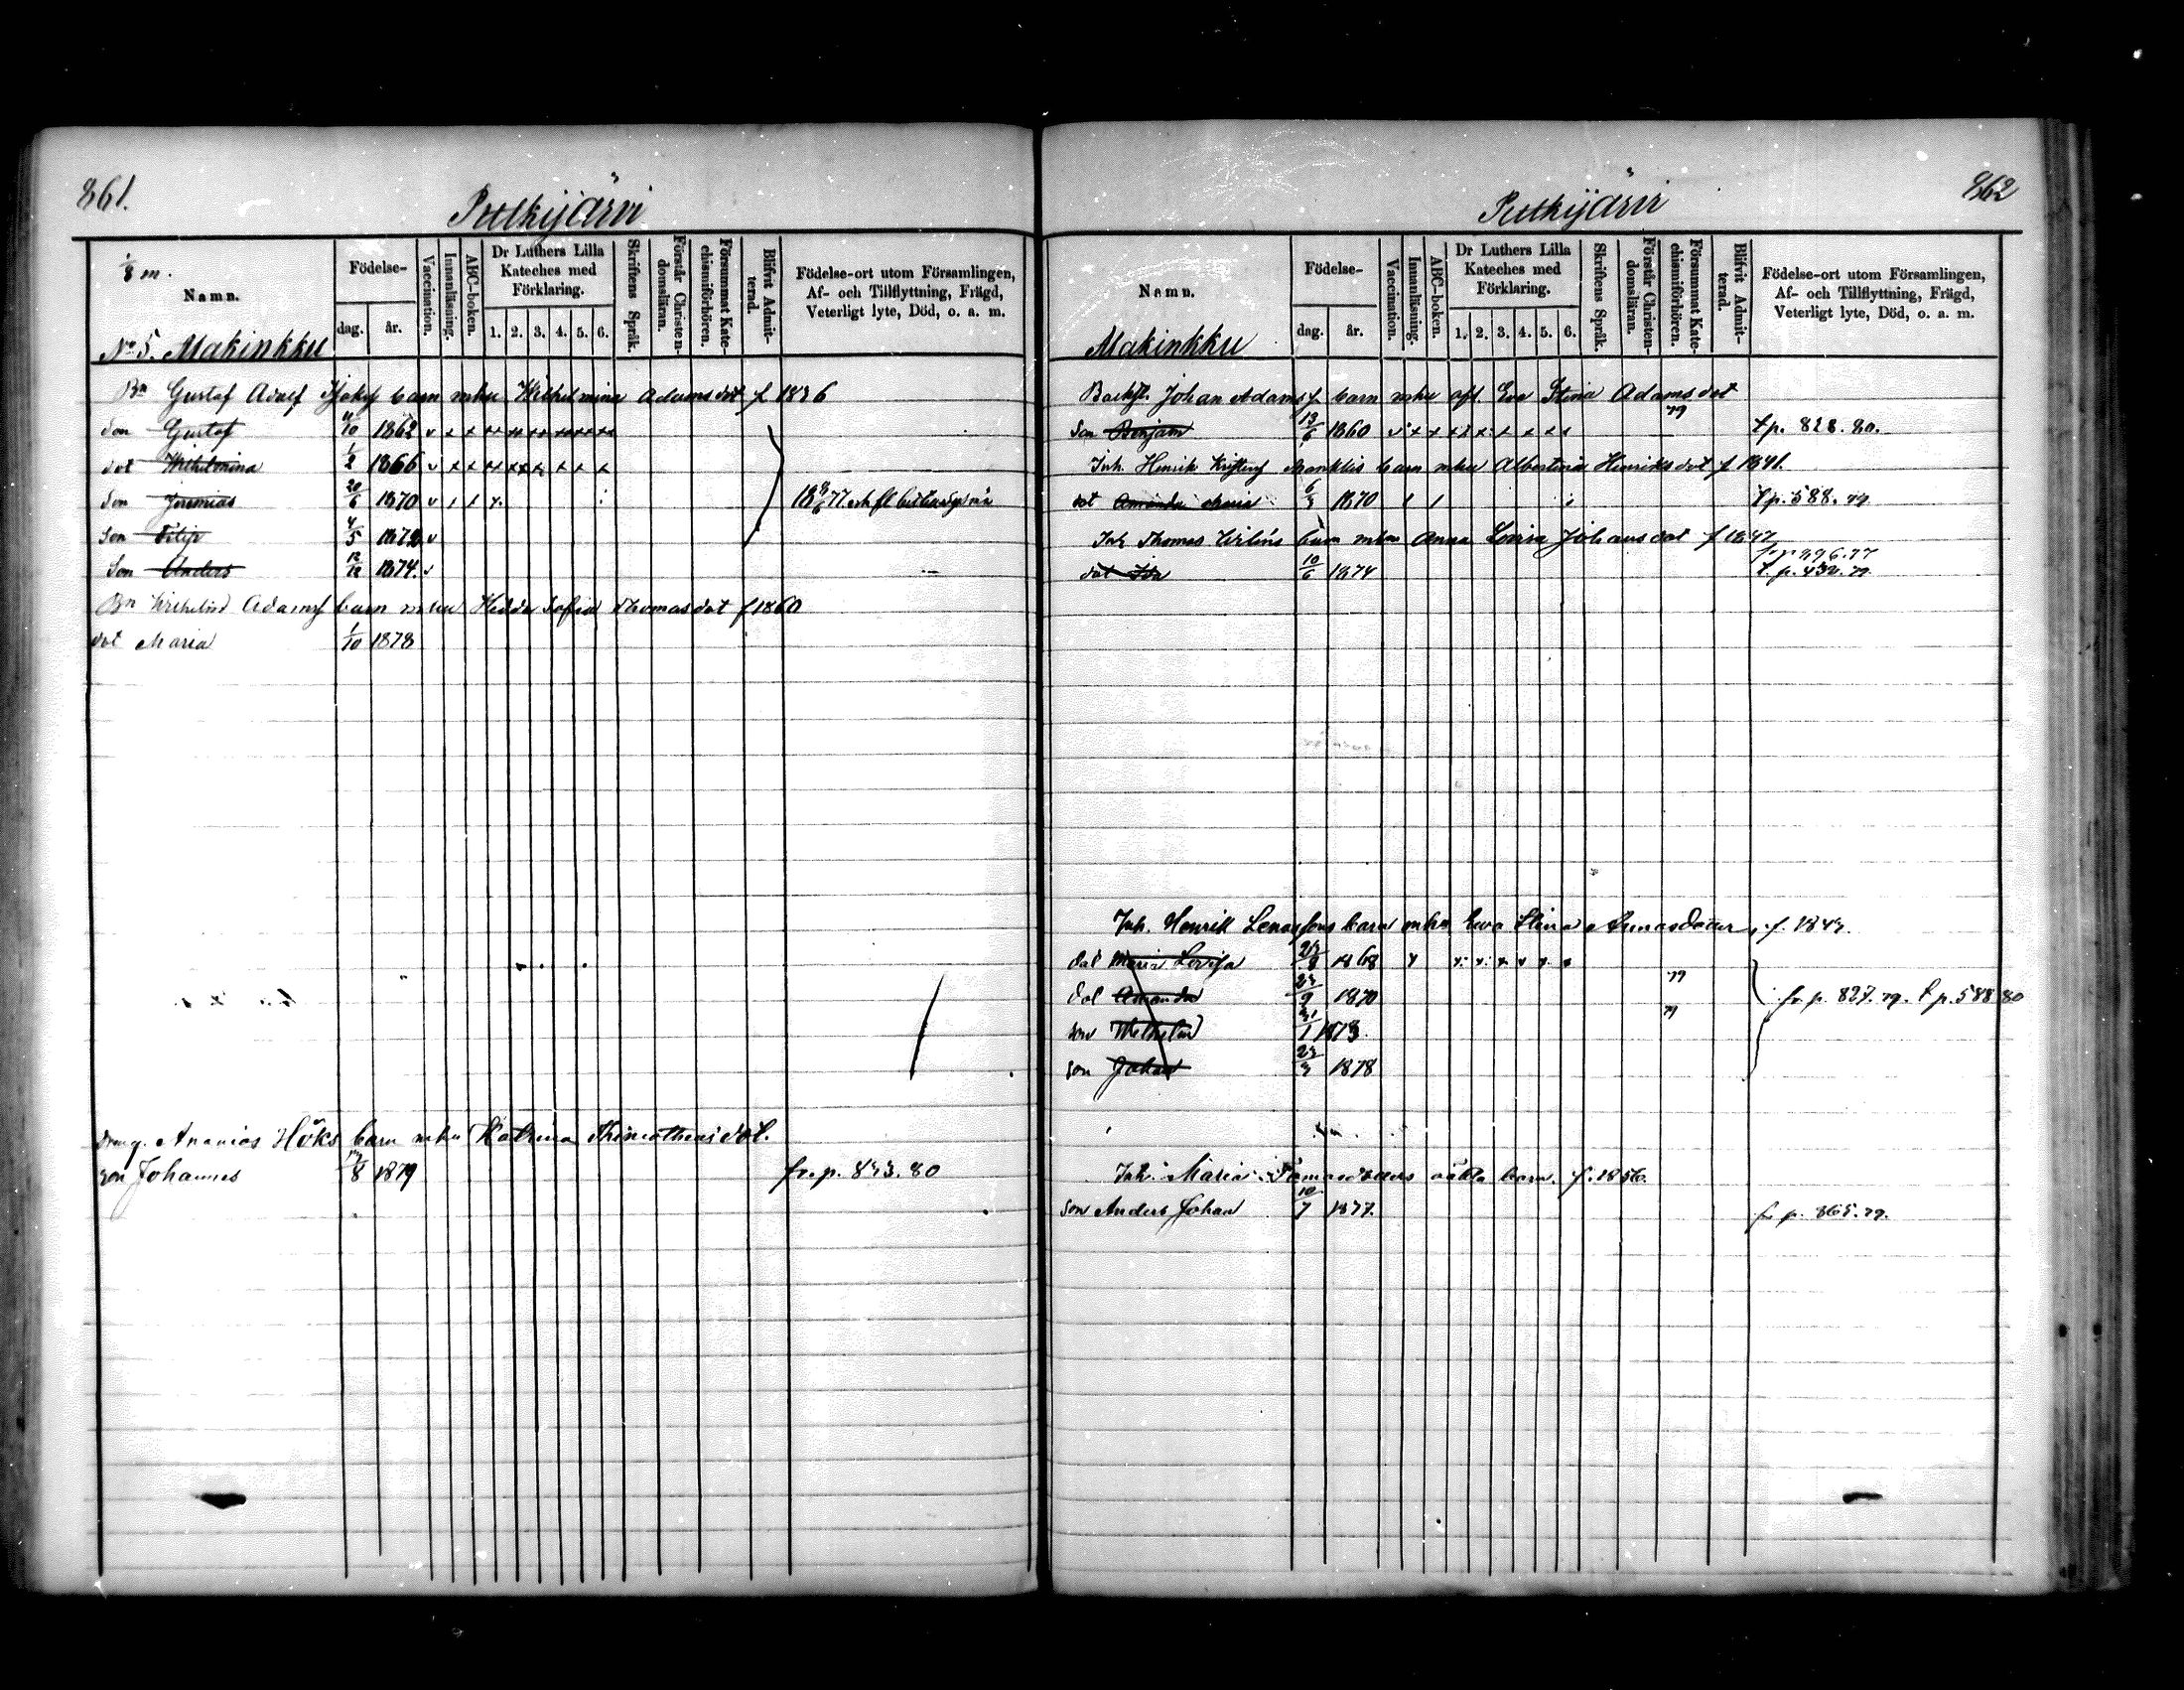 861.
Putkijärvi
1/8 m.
Namn.
Födelse-
dag.
år.
Vaccination.
Innanläsning.
ABC-boken.
Dr Luthers Lilla
Kateches med
Förklaring.
1. 2. 3. 4. 5. 6.
Skriftens Språk.
Förstår Christen-
domsläran.
Försummat Kate-
chismiförhören.
Blifvit Admit-
terad.
Födelse-ort utom Församlingen,
Af- och Tillflyttning, Frägd,
Veterligt lyte, Död, o. a. m.
No 5. Makinkku
Bn Gustaf Adolf barn mhu Wilhelmina Adamsdot f 1836
Son Gustaf 11/10 1862 v
dot Wilhelmina 1/2 1866 v
Son Jeremias 20/6 1870 v
Son Filip 4/5 1872 v
Son Anders 12/12 1874 v
Bn Wilhelms Adamsf barn mhu Hedda Sofia Thomasdot f 1860
dot Maria 1/10 1878
Dreng. Ananias Höks barn mhu Katrina Thimotheusdot.
son Johannes 17/8 1879 fr. p. 843. 80
862
Putkijärvi
Namn.
Födelse-
dag.
år.
Vaccination.
Innanläsning.
ABC-boken.
Dr Luthers Lilla
Kateches med
Förklaring.
1. 2. 3. 4. 5. 6.
Skriftens Språk.
Förstår Christen-
domsläran.
Försummat Kate-
chismiförhören.
Blifvit Admit-
terad.
Födelse-ort utom Församlingen,
Af- och Tillflyttning, Frägd,
Veterligt lyte, Död, o. a. m.
Makinkku
Johan Adamsf barn mhu afl Eva Stina Adamsdot
Son Benjam 13/6 1860 79 t p. 828. 80.
Inh. Henrik barn mhu Albertina Henriksdot f 1841.
dot Amanda Maria 6/3 1870 t p. 588. 79
Inh Thomas barn mhu Anna Lovisa Johansdot f 1847
dot Ida 10/6 1874 t. p. 432. 79
Inh. Henrik barn mhu Eva Stina f. 1843.
dot Maria Lovisa 1868
dot Amanda 23/9 1870 79 fr. p. 827. 79. t p. 588 80
son Wilhelm 31/1 1873. 79
son Johan 23/3 1878
Inh. Maria oäkta barn. f. 1856.
son Anders Johan 10/7 1877. fr p. 865. 79.